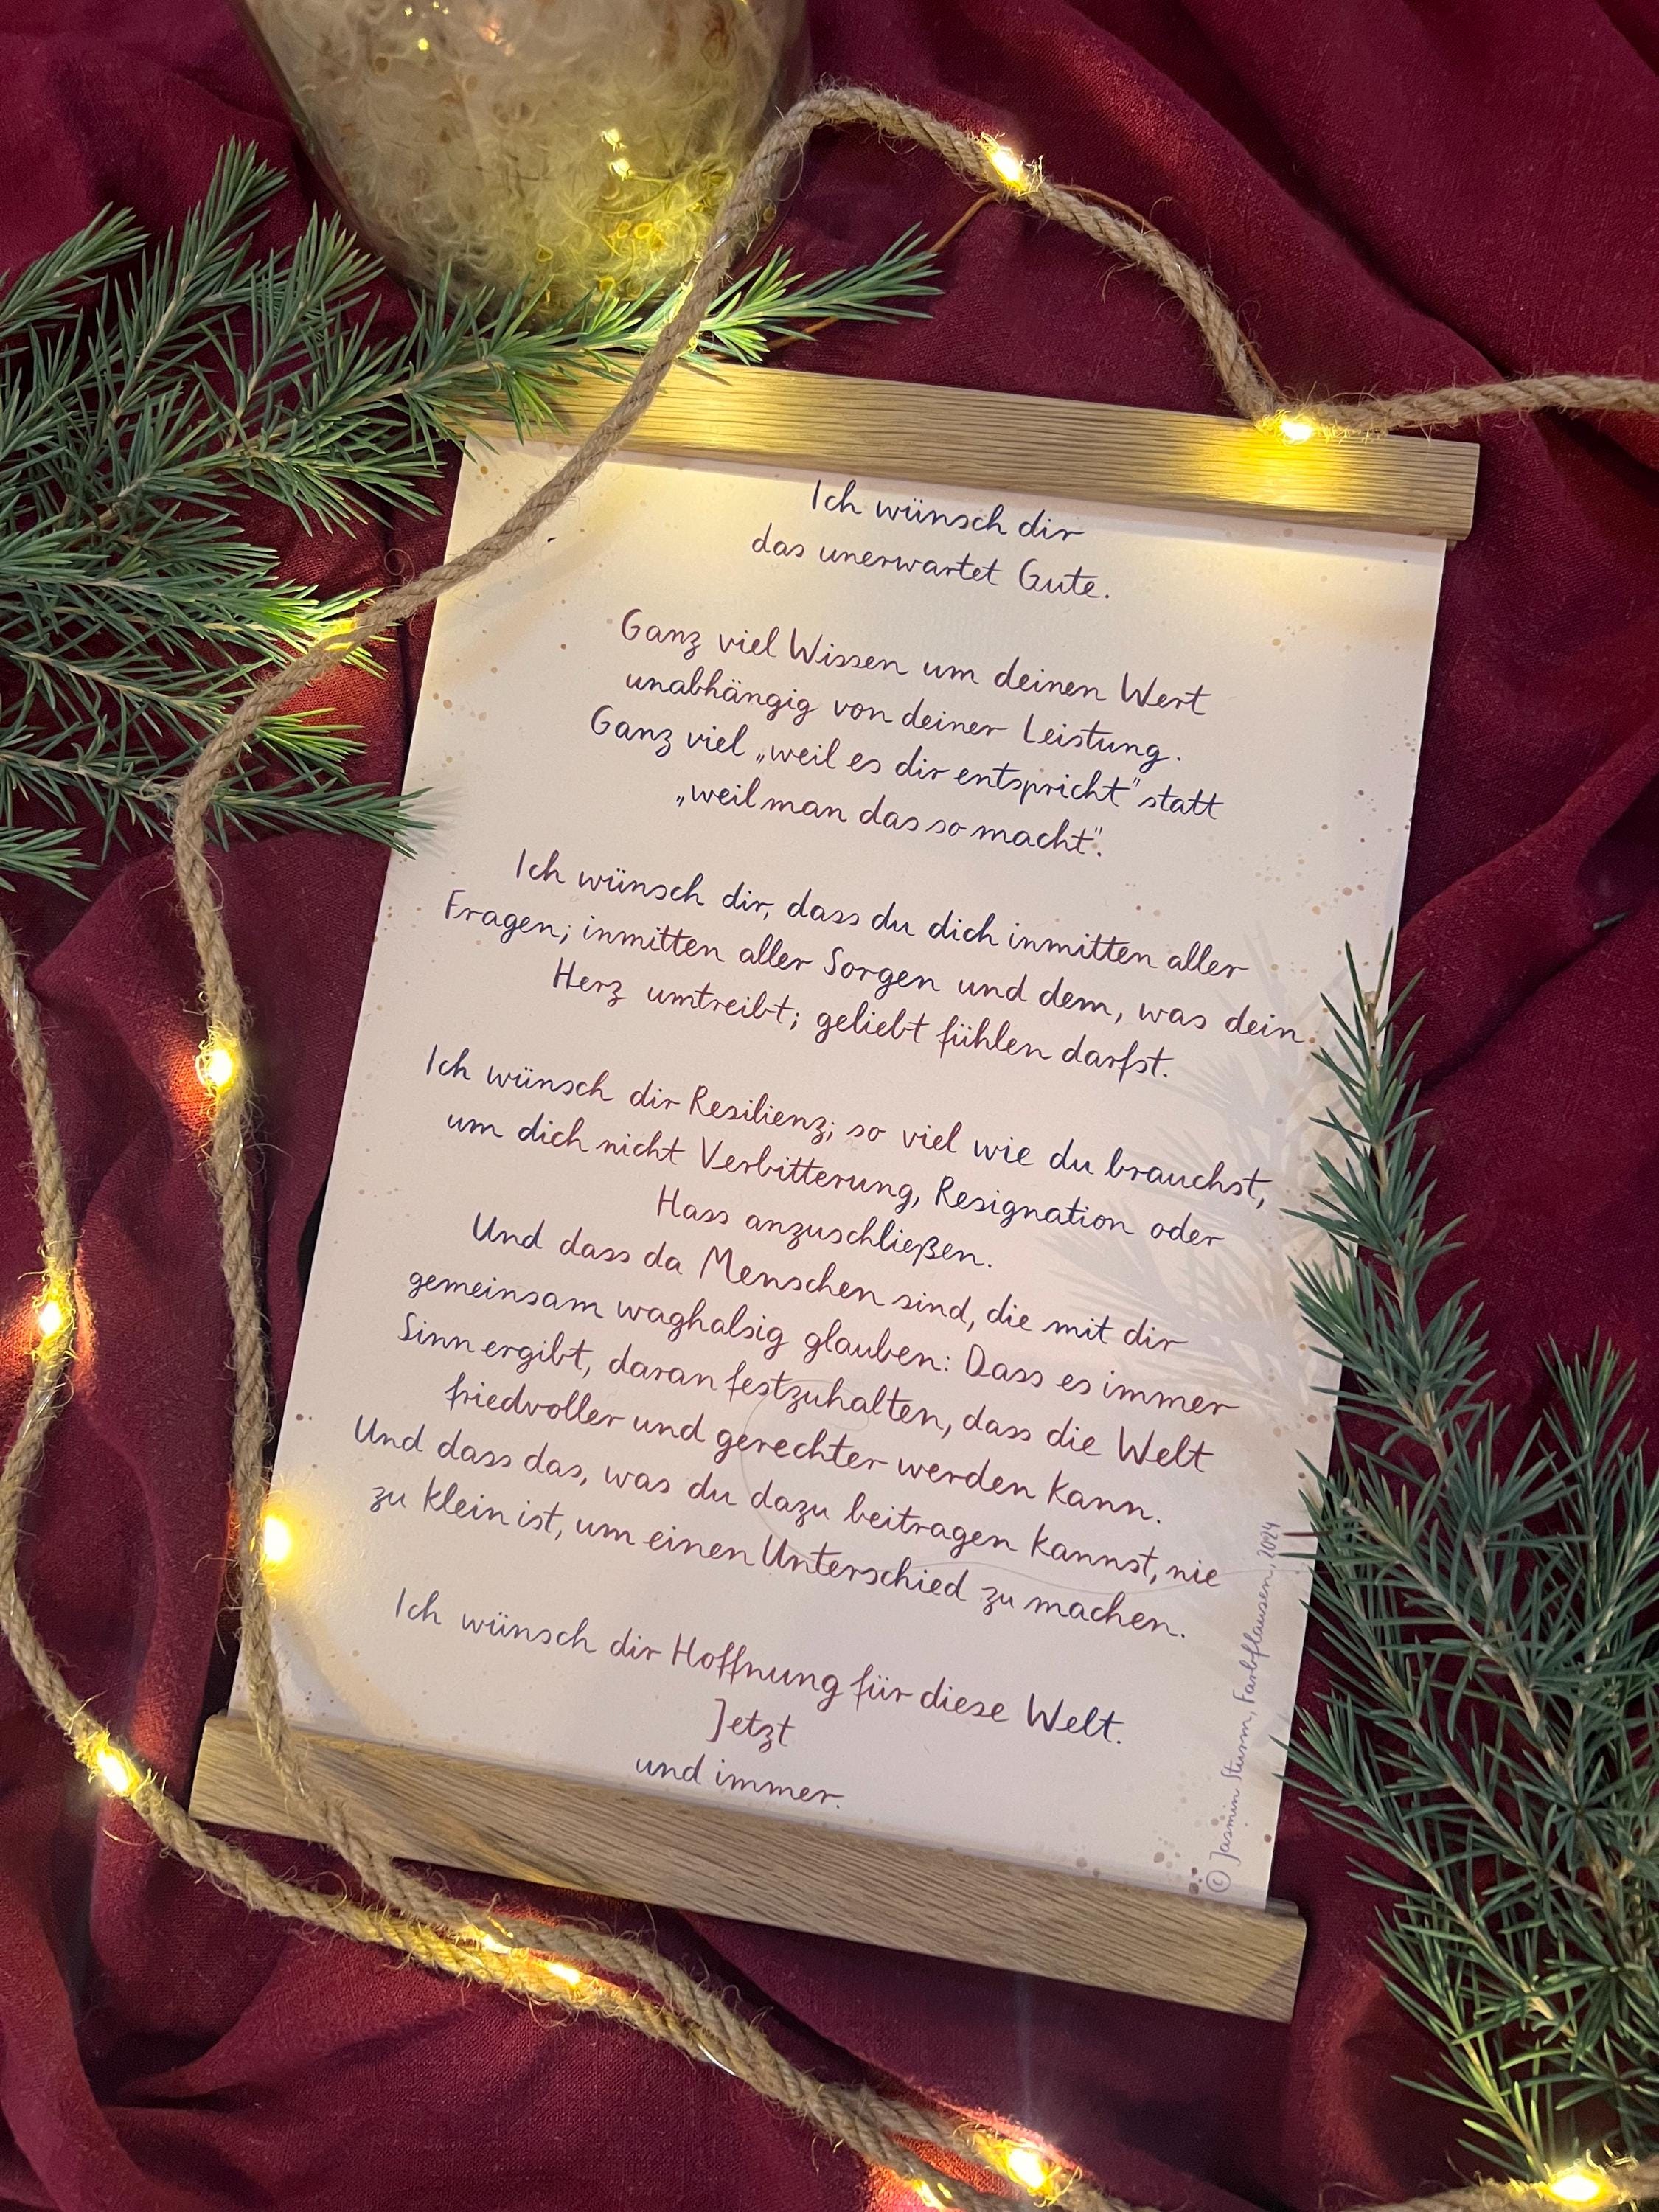 Ich wünsch dir
das unerwartet Gute.
Ganz viel Wissen um deinen Wert
unabhängig von deiner Leistung.
Ganz viel „weil es dir entspricht" statt
„weil man das so macht".
Ich wünsch dir, dass du dich inmitten aller
Fragen; inmitten aller Sorgen und dem, was dein
Herz umtreibt; geliebt fühlen darfst.
Ich wünsch dir Resilienz; so viel wie du brauchst,
um dich nicht Verbitterung, Resignation oder
Hass anzuschließen.
Und dass da Menschen sind, die mit dir
gemeinsam waghalsig glauben: Dass es immer
Sinn ergibt, daran festzuhalten, dass die Welt
friedvoller und gerechter werden kann.
Und dass das, was du dazu beitragen kannst, nie
zu klein ist, um einen Unterschied zu machen.
Ich wünsch dir Hoffnung für diese Welt.
Jetzt
und immer.
© Jasmin Sturm, Farbflausen, 2024